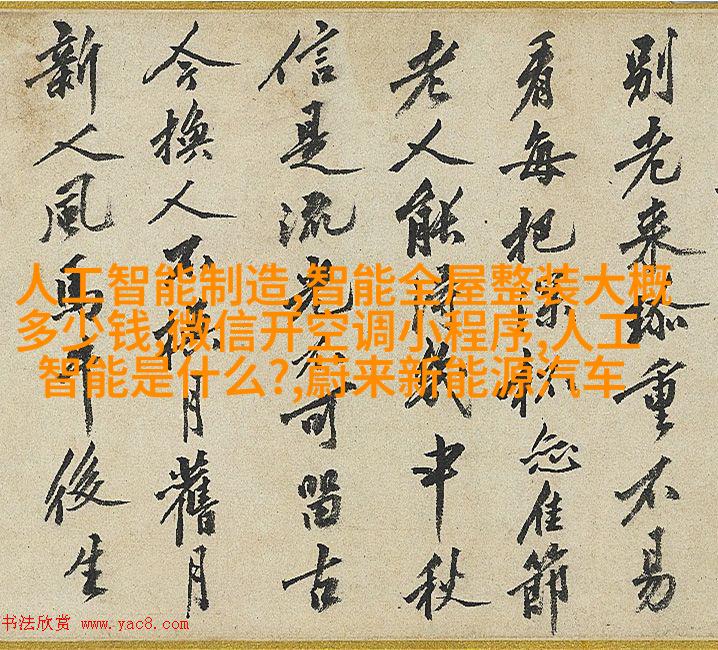 别老来珍重不易
看每把深杯佳節
老人能得幾中秋
信是流光不可留古
今换人不换月舊月
新人風馬牛後生
人工智能制造,智能全屋整装大概
多少钱,微信开空调小程序,人工
智能是什么?,蔚来新能源汽车
书法欣赏 www.yac8.com